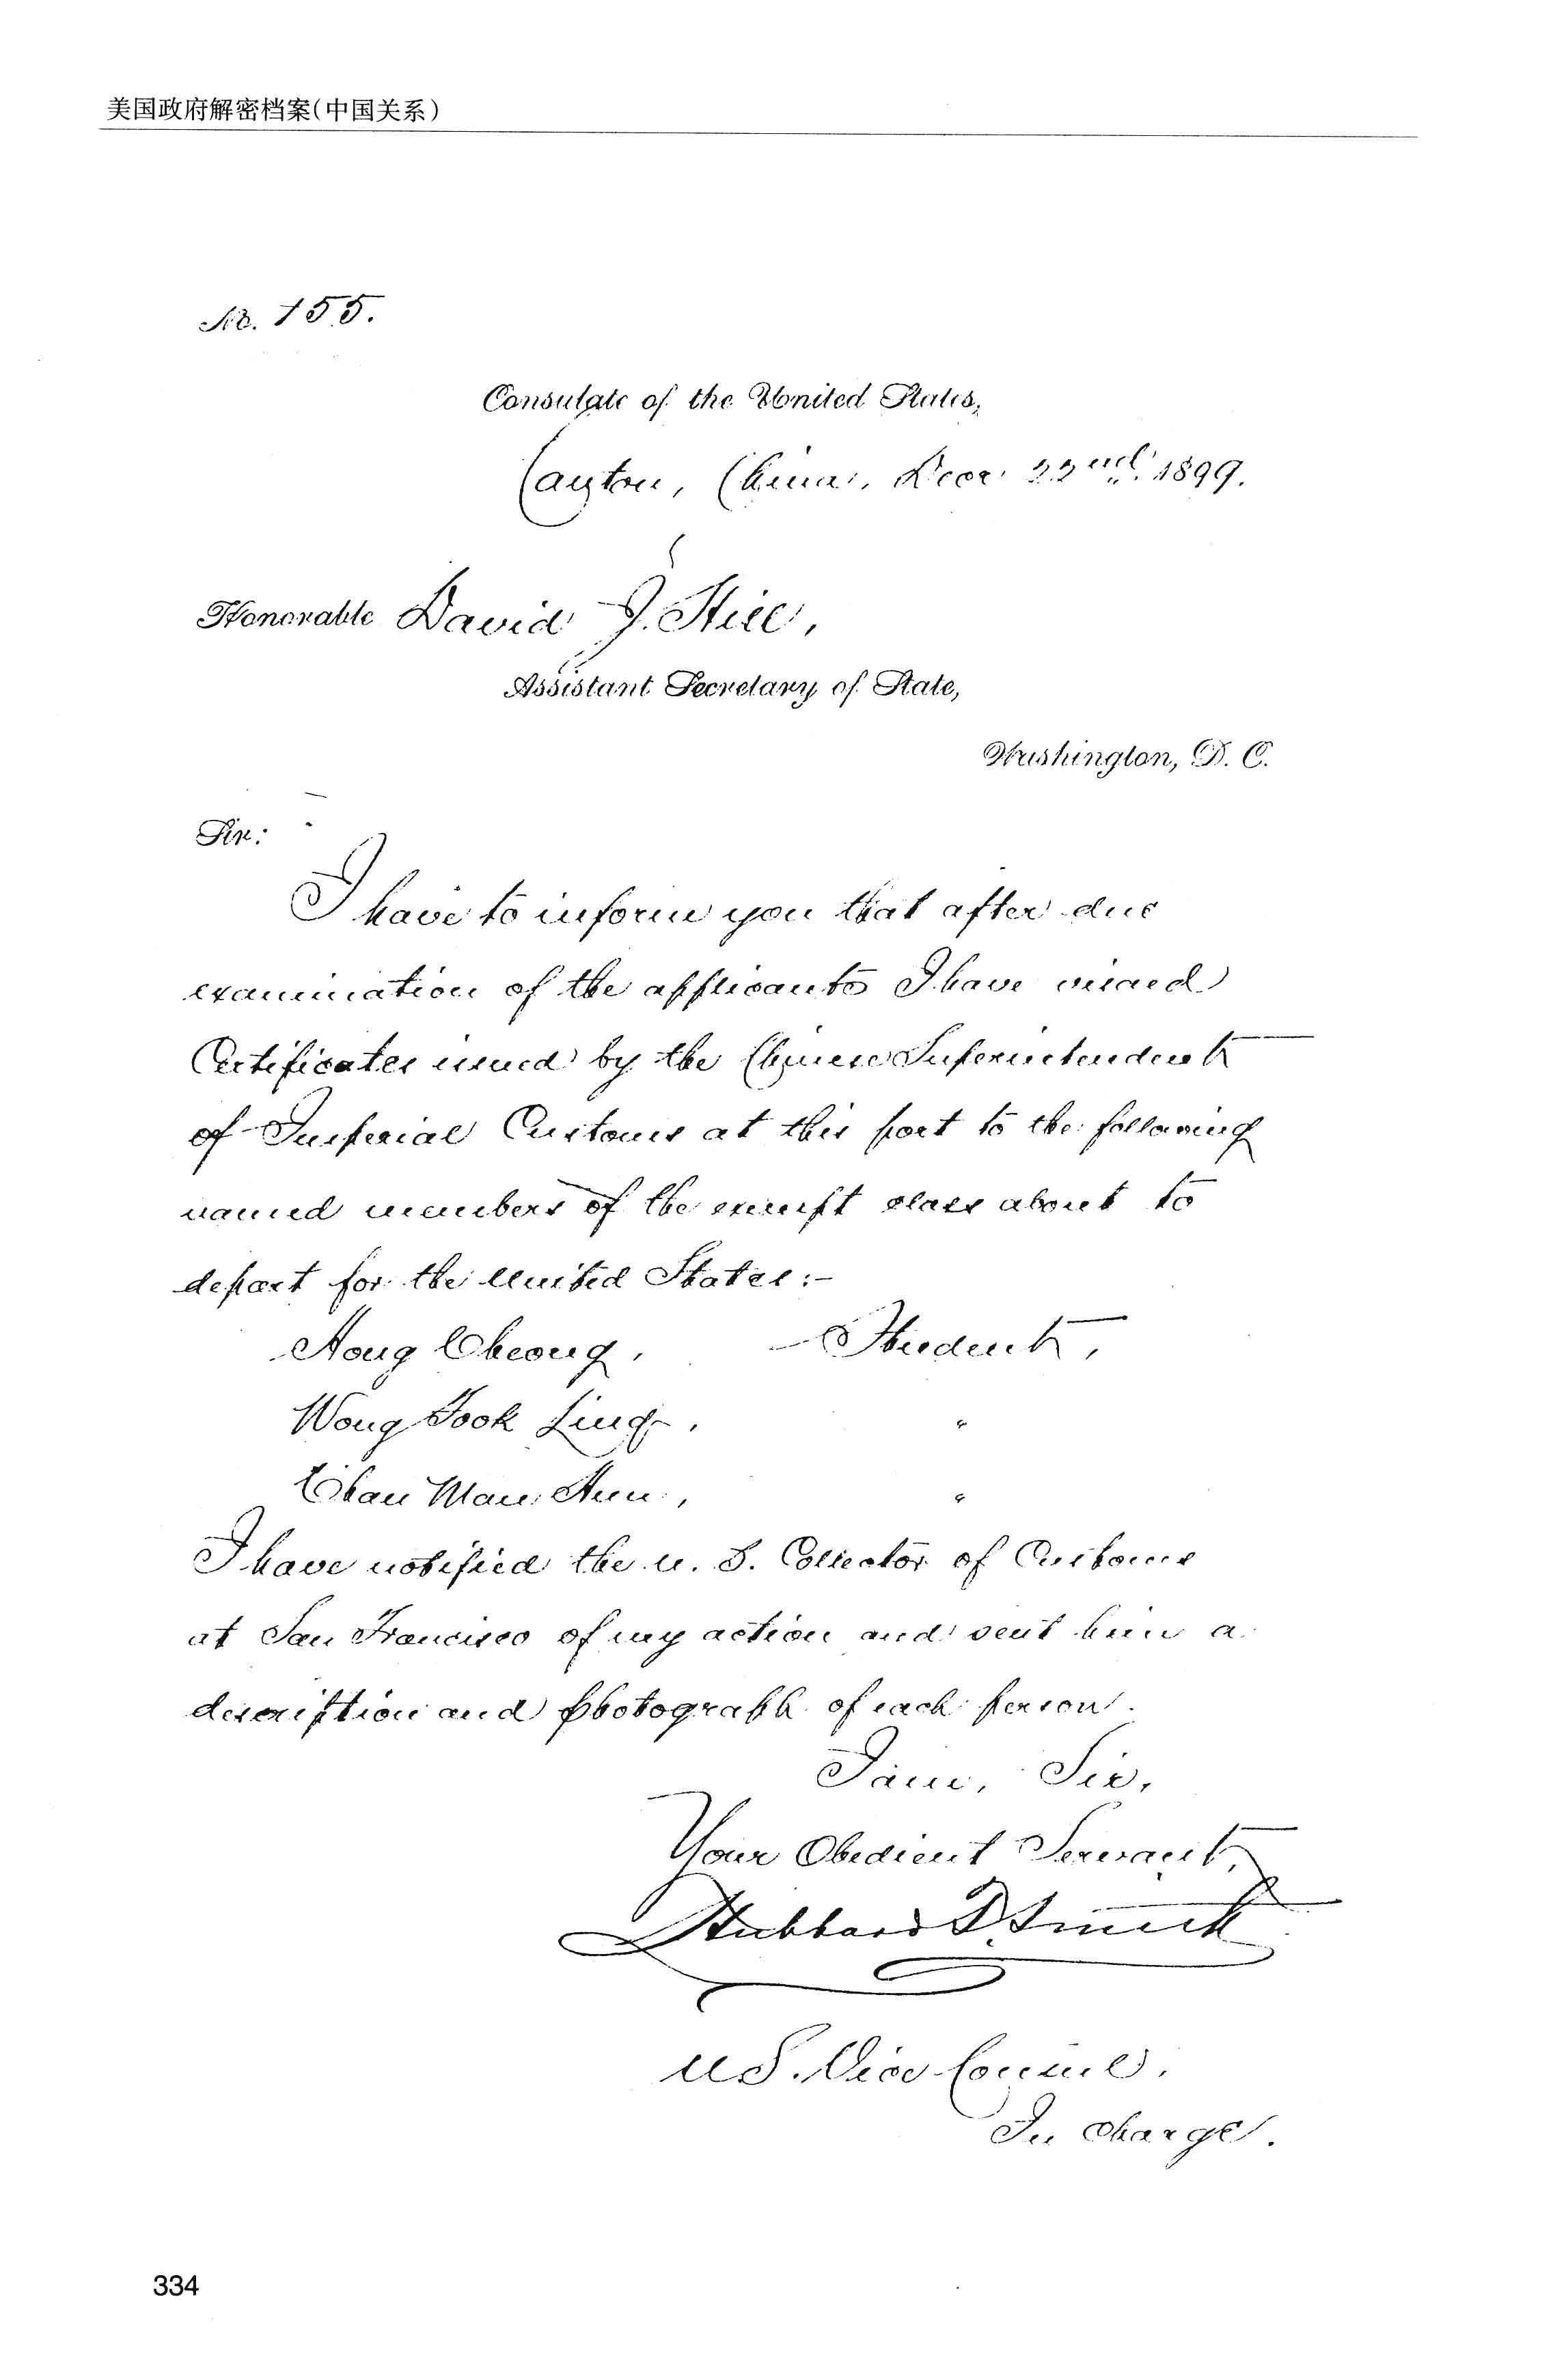 美国政府解密档案(中国关系)
No. 155.
Consulate of the United States,
Canton, China, Decr 22nd. 1899.
Honorable David J. Hill,
Assistant Secretary of State,
Washington, D. C.
Sir:
I have to inform you that after due
examination of the applicants I have visaed
Certificates issued by the Chinese Superintendent
of Imperial Customs at this port to the following
named members of the exempt class about to
depart for the United States:-
Hong Cheong, - Student,
Wong Took Ling, "
Chan Man Hun, "
I have notified the U. S. Collector of Customs
at San Francisco of my action and sent him a
description and photograph of each person.
I am, Sir,
Your Obedient Servant,
Hubbard T. Smith
U S. Vice Consul.
In charge.
334